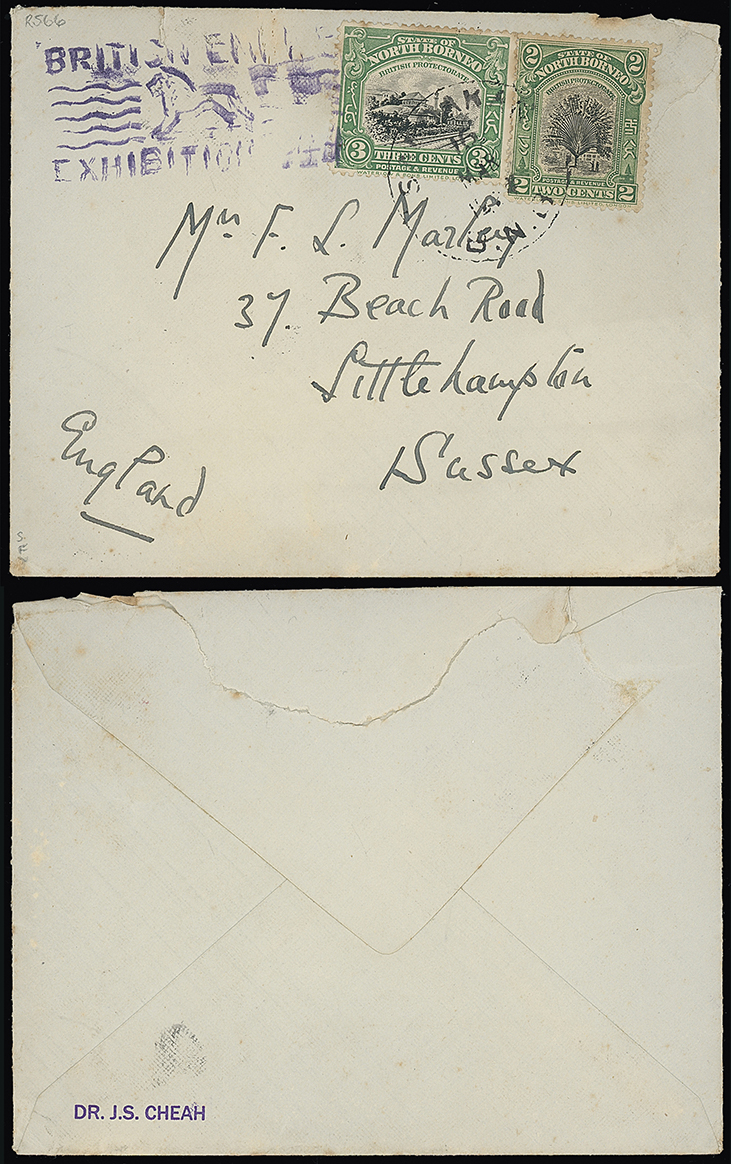 R566
BRITISH EMPIRE
EXHIBITION
STATE OF
NORTH BORNEO
BRITISH PROTECTORATE
3 THREE CENTS 3
POSTAGE & REVENUE
WATERLOW & SONS LIMITED. LONDON
2 2
STATE OF
NORTH BORNEO
BRITISH PROTECTORATE
POSTAGE & REVENUE
2 TWO CENTS 2
Mrs F. L. Marley
37. Beach Road
Littlehampton
Sussex
England
DR. J.S. CHEAH